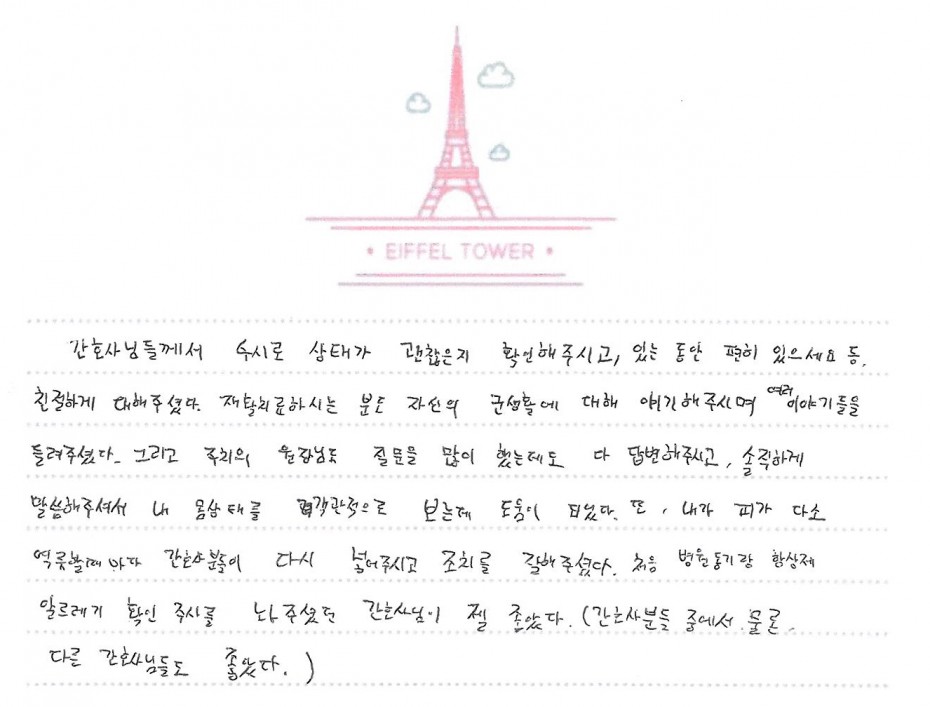 EIFFEL TOWER
간호사님들께서 수시로 상태가 괜찮은지 확인해주시고, 있는 동안 편히 있으세요 등,
친절하게 대해주셨다. 재활치료하시는 분도 자신의 군생활에 대해 얘기해주시며 여러 이야기들을
들려주셨다. 그리고 주치의 원장님도 질문을 많이 했는데도 다 답변해주시고, 솔직하게
말씀해주셔서 내 몸상태를 객관적으로 보는데 도움이 되었다. 또, 내가 피가 다소
역류할때 마다 간호사분들이 다시 넣어주시고 조치를 잘해주셨다. 처음 병원동기랑 항생제
알르레기 확인 주사를 놔주셨던 간호사님이 젤 좋았다. (간호사분들 중에서. 물론,
다른 간호사님들도 좋았다.)